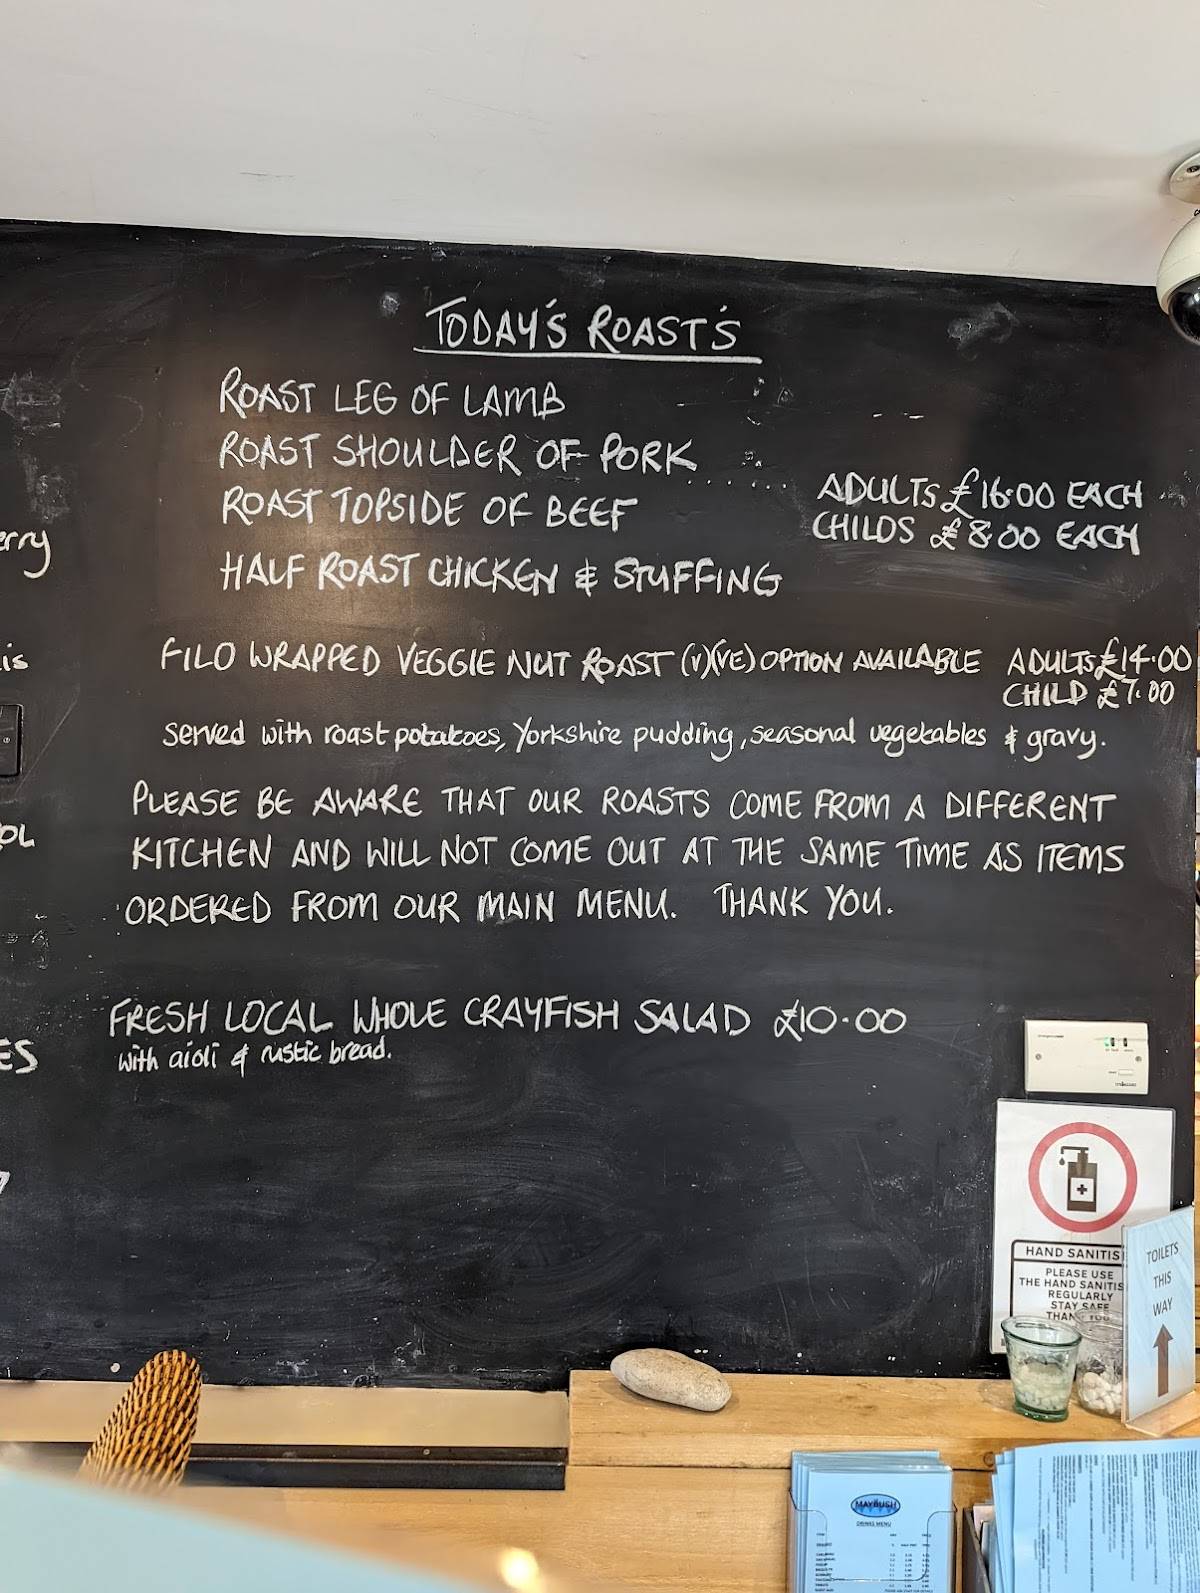 TODAY'S ROAST'S
ROAST LEG OF LAMB
ROAST SHOULDER OF PORK
ROAST TOPSIDE OF BEEF
HALF ROAST CHICKEN & STUFFING
ADULTS £16.00 EACH
CHILDS £8.00 EACH
FILO WRAPPED VEGGIE NUT ROAST (V)(VE) OPTION AVAILABLE ADULTS £14.00
CHILD £7.00
served with roast potatoes, Yorkshire pudding, seasonal vegetables & gravy.
PLEASE BE AWARE THAT OUR ROASTS COME FROM A DIFFERENT
KITCHEN AND WILL NOT COME OUT AT THE SAME TIME AS ITEMS
ORDERED FROM OUR MAIN MENU. THANK YOU.
FRESH LOCAL WHOLE CRAYFISH SALAD £10.00
with aioli & rustic bread.
erry
is
OL
ES
HAND SANITIS
PLEASE USE
THE HAND SANITIS
REGULARLY
STAY SAFE
THANK YOU
TOILETS
THIS
WAY
MAYBUSH
DRINKS MENU